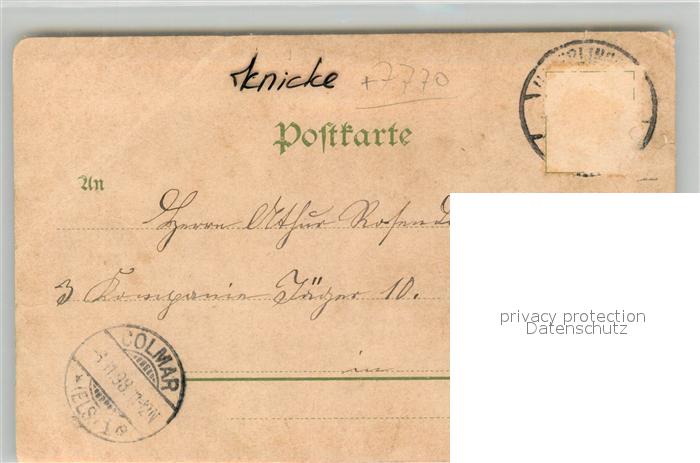 knicke +7770
Postkarte
An
Herrn Arthur Rosen
3 Kompanie Jäger 10.
in
COLMAR
98
(ELS.)
privacy protection
Datenschutz